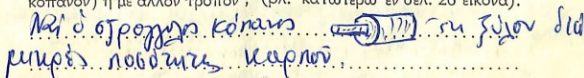 κόπανον) ἢ μὲ ἄλλον τρόπον ; (βλ. κατωτέρω ἐν σελ. 20 εἰκόνα).
Ναί ὁ στρογγυλός κόπανος ἐκ ξύλου διά
μικρές ποσότητες καρπού.